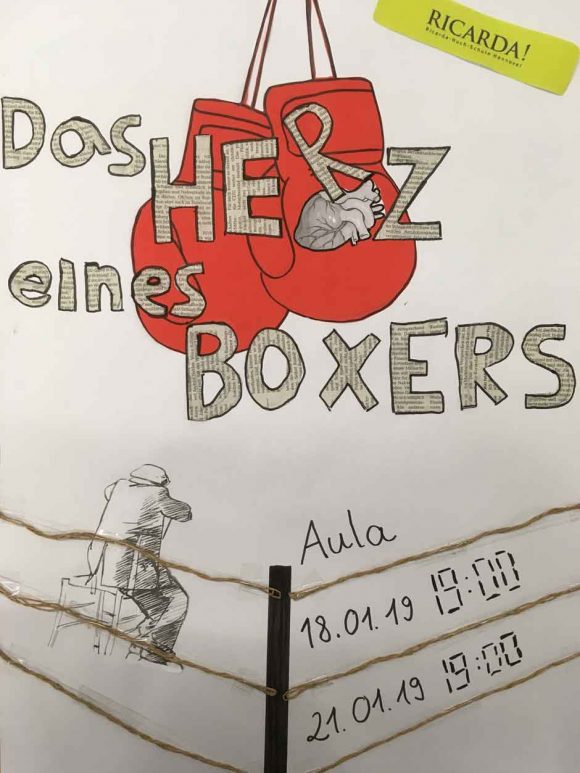 RICARDA!
Ricarda-Huch-Schule Hannover
Das HERZ
eines
BOXERS
Aula
18.01.19 19:00
21.01.19 19:00